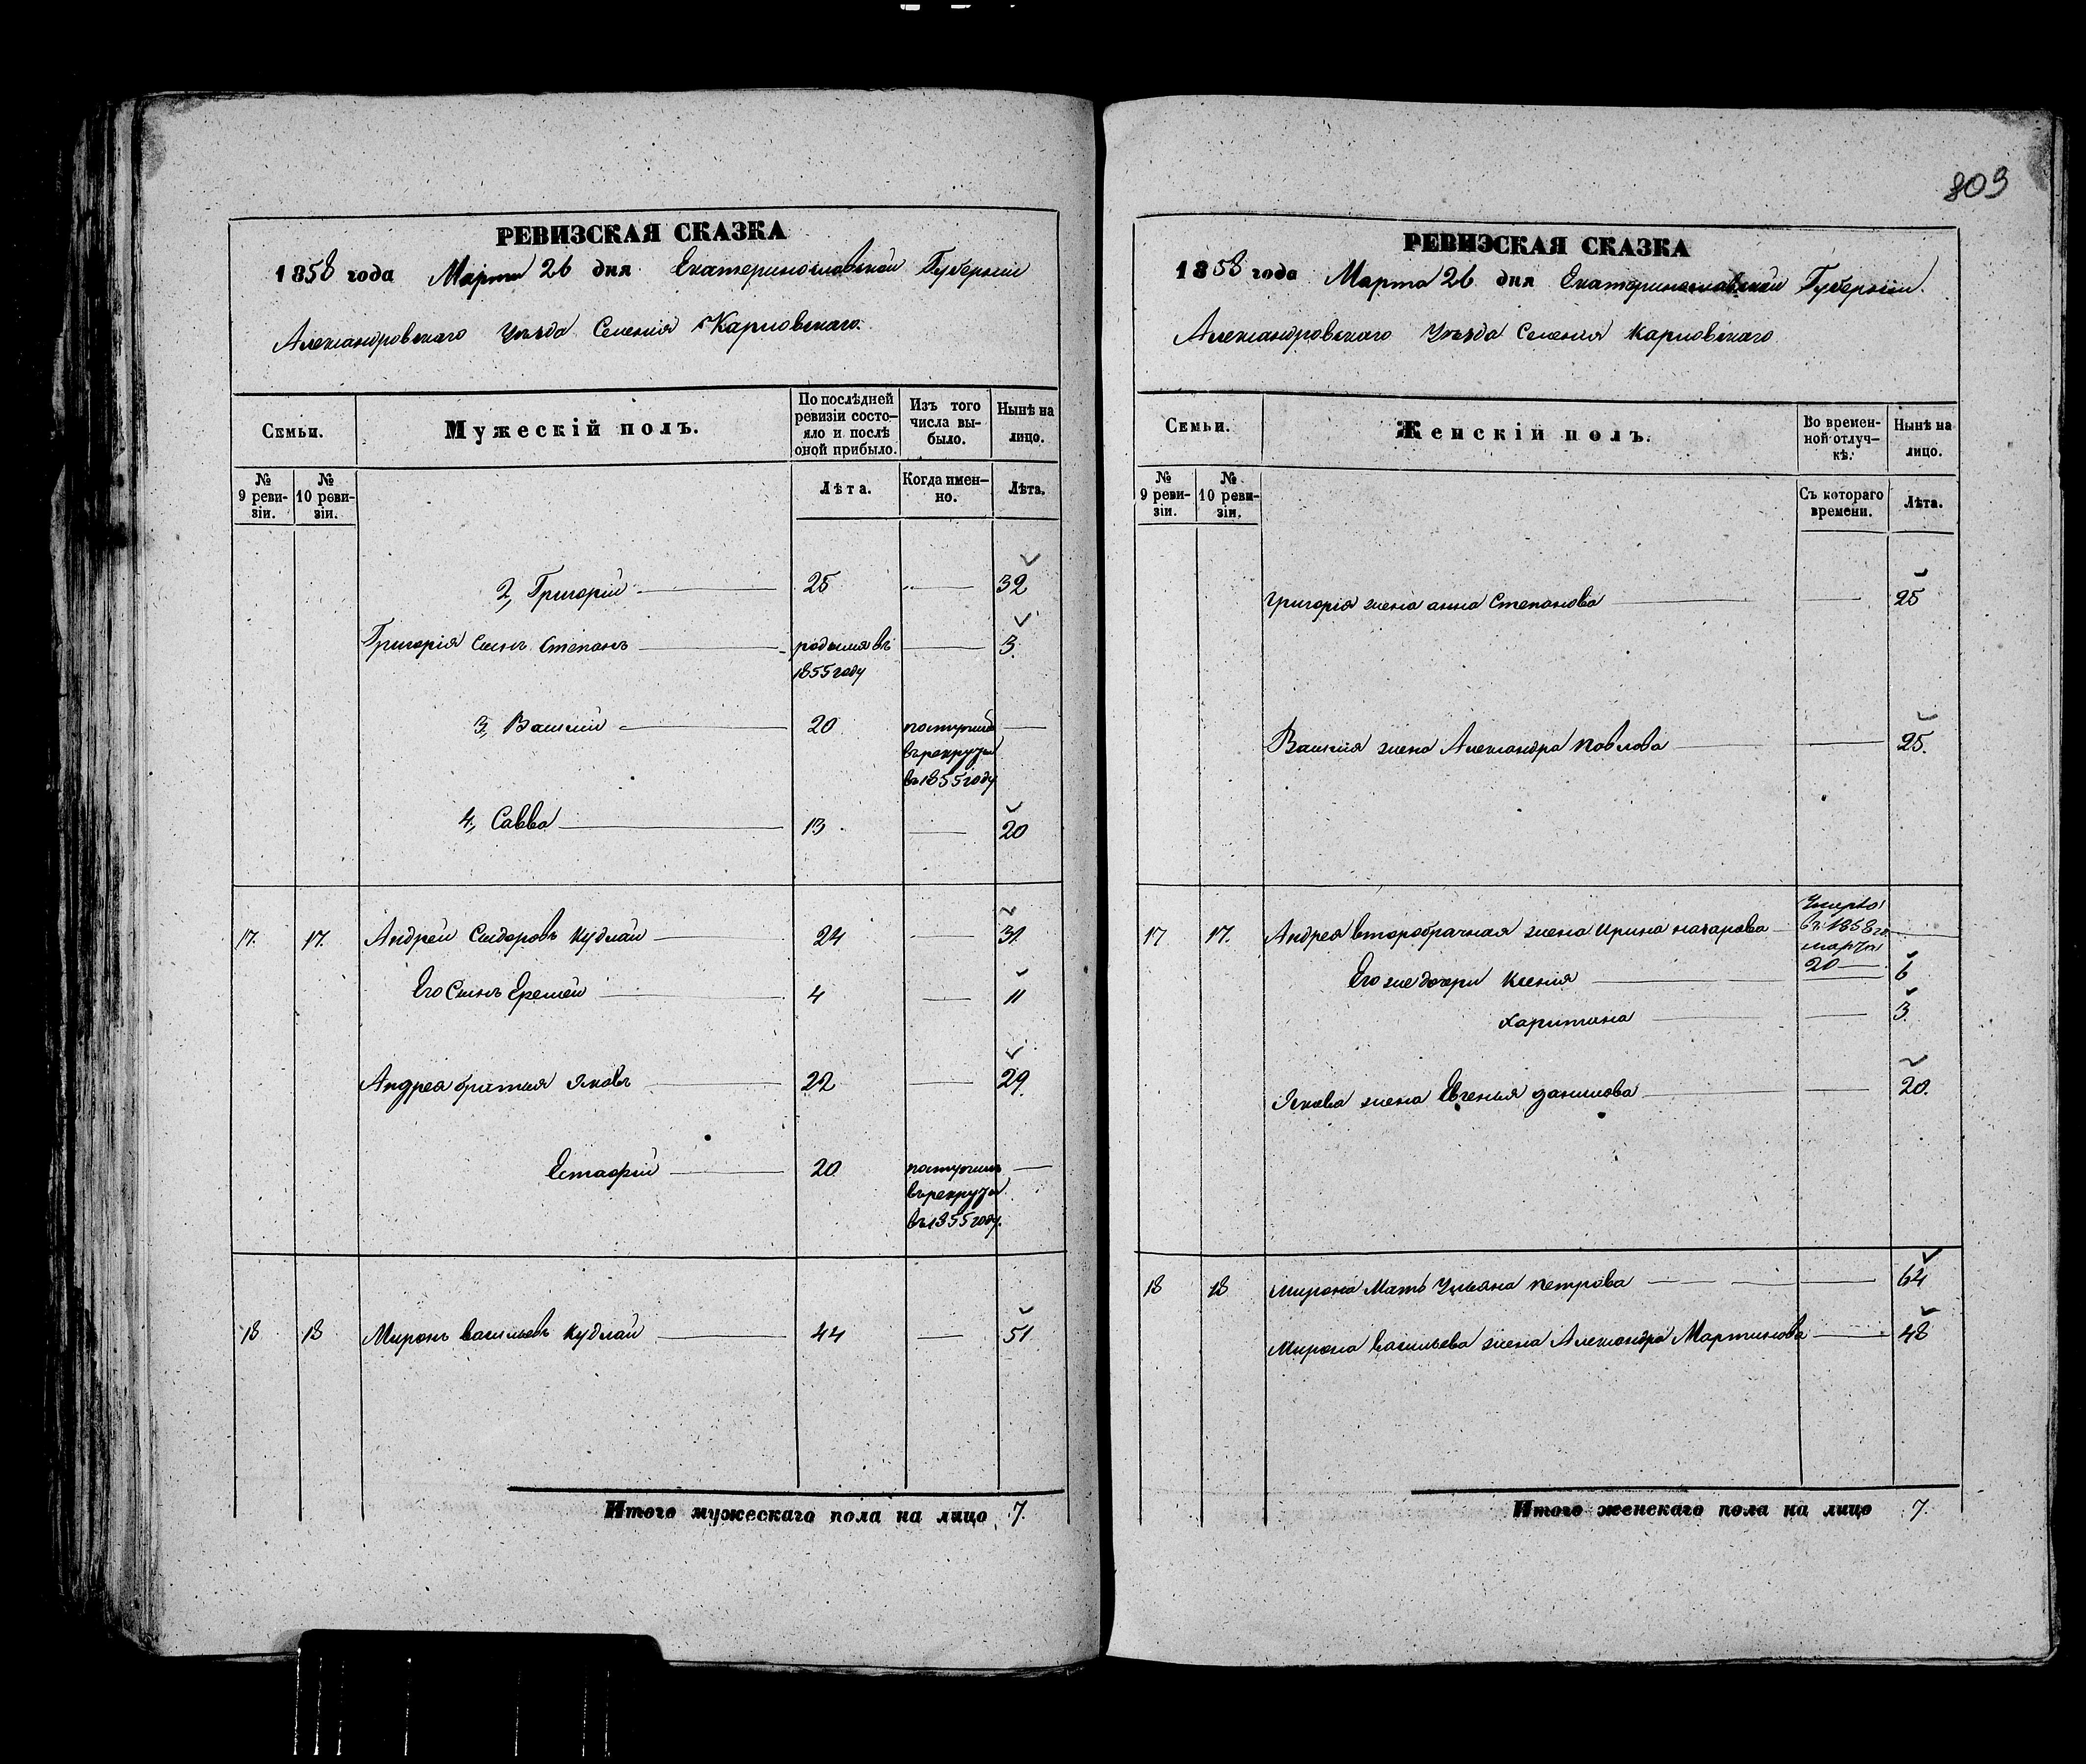 809
РЕВИЗСКАЯ СКАЗКА
1858 года Марта 26 дня Екатеринославской Губернии
Александровскаго Уѣзда Селенія Карловскаго.
Семьи.
Мужескій полъ.
По послѣдней ревизіи состо-
яло и послѣ оной прибыло.
Изъ того числа вы-
было.
Нынѣ на лицо.
№ 9 реви-
зіи.
№ 10 реви-
зіи.
Лѣта.
Когда имен-
но.
Лѣта.
2, Григорій 25 32
Григорія Сынъ Степанъ родился въ 3.
1855 году
3, Василий 20 поступилъ
въ рекруты
въ 1855 году
4, Савва 13 20
17. 17. Андрей Сидоровъ Кудлай 24 31
Его Сынъ Еремей 4 11
Андрея братья Яковъ 22 29
Естафій 20 поступилъ
въ рекруты
въ 1855 году.
18 18 Миронъ Васильевъ Кудлай 44 51
Итого мужескаго пола на лицо 7.
РЕВИЗСКАЯ СКАЗКА
1858 года Марта 26 дня Екатеринославской Губерніи.
Александровскаго Уѣзда Селенія Карловскаго
Семьи.
Женскій полъ.
Во времен-
ной отлуч-
кѣ.
Нынѣ на лицо.
№ 9 реви-
зіи.
№ 10 реви-
зіи.
Съ котораго времени.
Лѣта.
Григорія жена анна Степанова 25
Василия жена Александра Павлова 25.
17 17. Андрея второбрачная жена Ирина назарова Умерла
въ 1858 го
марта
20
Его же дочери Ксения 6
Харитина 3.
Якова жена Евгенья данилова 20.
18 18 Мирона Мать Ульяна Петрова 64
Мирона Васильева жена Александра Мартинова 48
Итого женскаго пола на лицо 7.